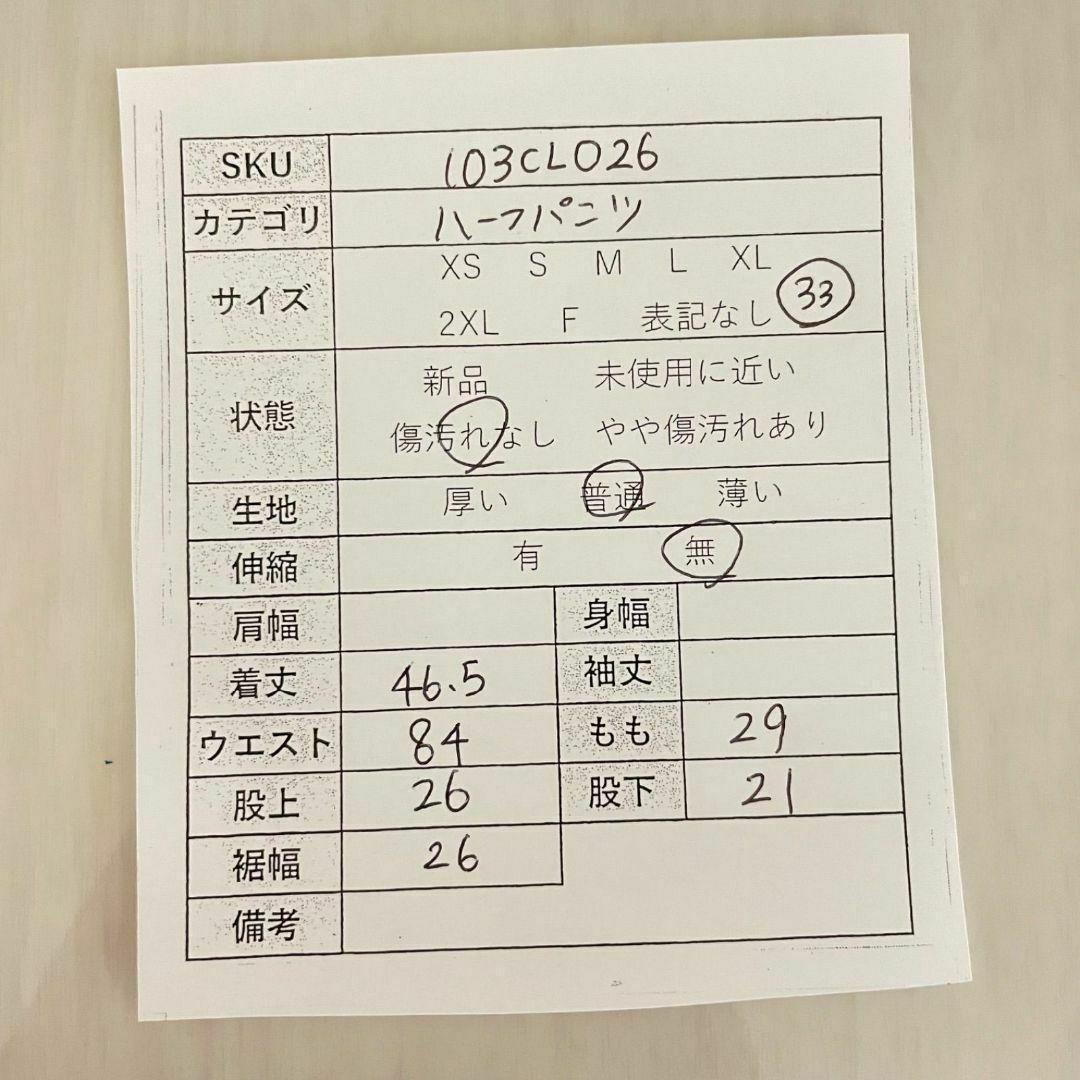 SKU 103CL026
カテゴリ ハーフパンツ
サイズ XS S M L XL
2XL F 表記なし 33
状態 新品 未使用に近い
傷汚れなし やや傷汚れあり
生地 厚い 普通 薄い
伸縮 有 無
肩幅 身幅
着丈 46.5 袖丈
ウエスト 84 もも 29
股上 26 股下 21
裾幅 26
備考